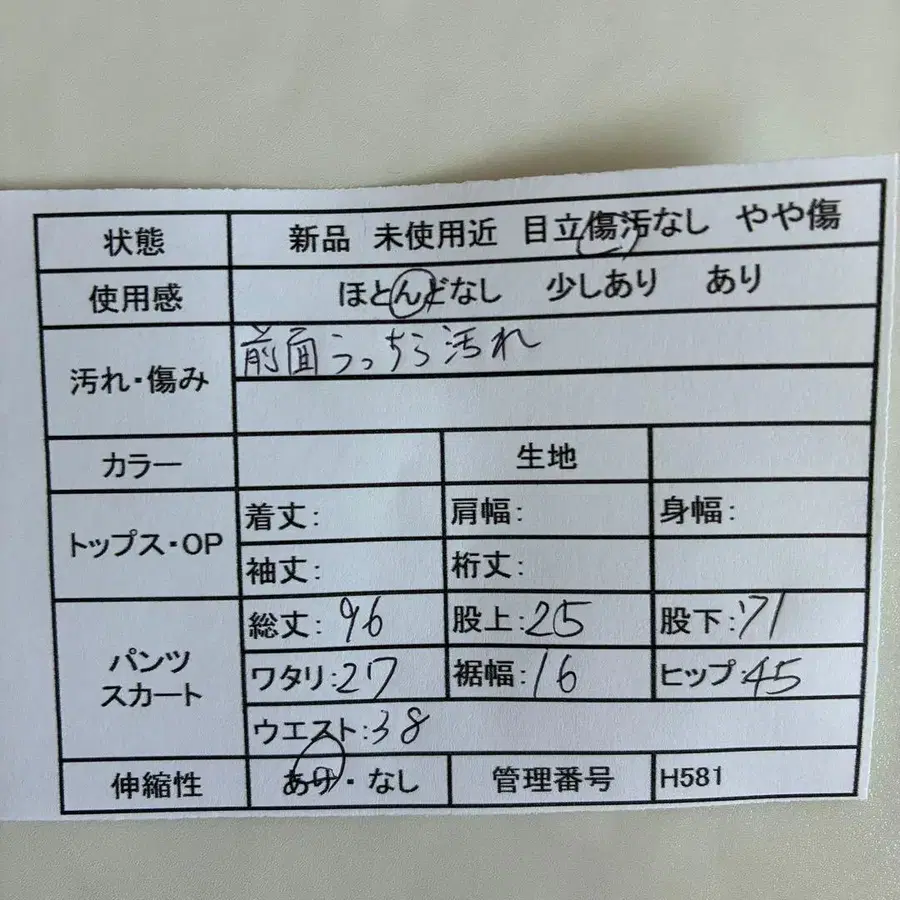 状態 新品 未使用近 目立傷汚なし やや傷
使用感 ほとんどなし 少しあり あり
汚れ・傷み 前面うっちら汚れ
カラー 生地
トップス・OP 着丈: 肩幅: 身幅:
袖丈: 裄丈:
パンツ スカート 総丈:96 股上:25 股下:71
ワタリ:27 裾幅:16 ヒップ:45
ウエスト:38
伸縮性 あり・なし 管理番号 H581